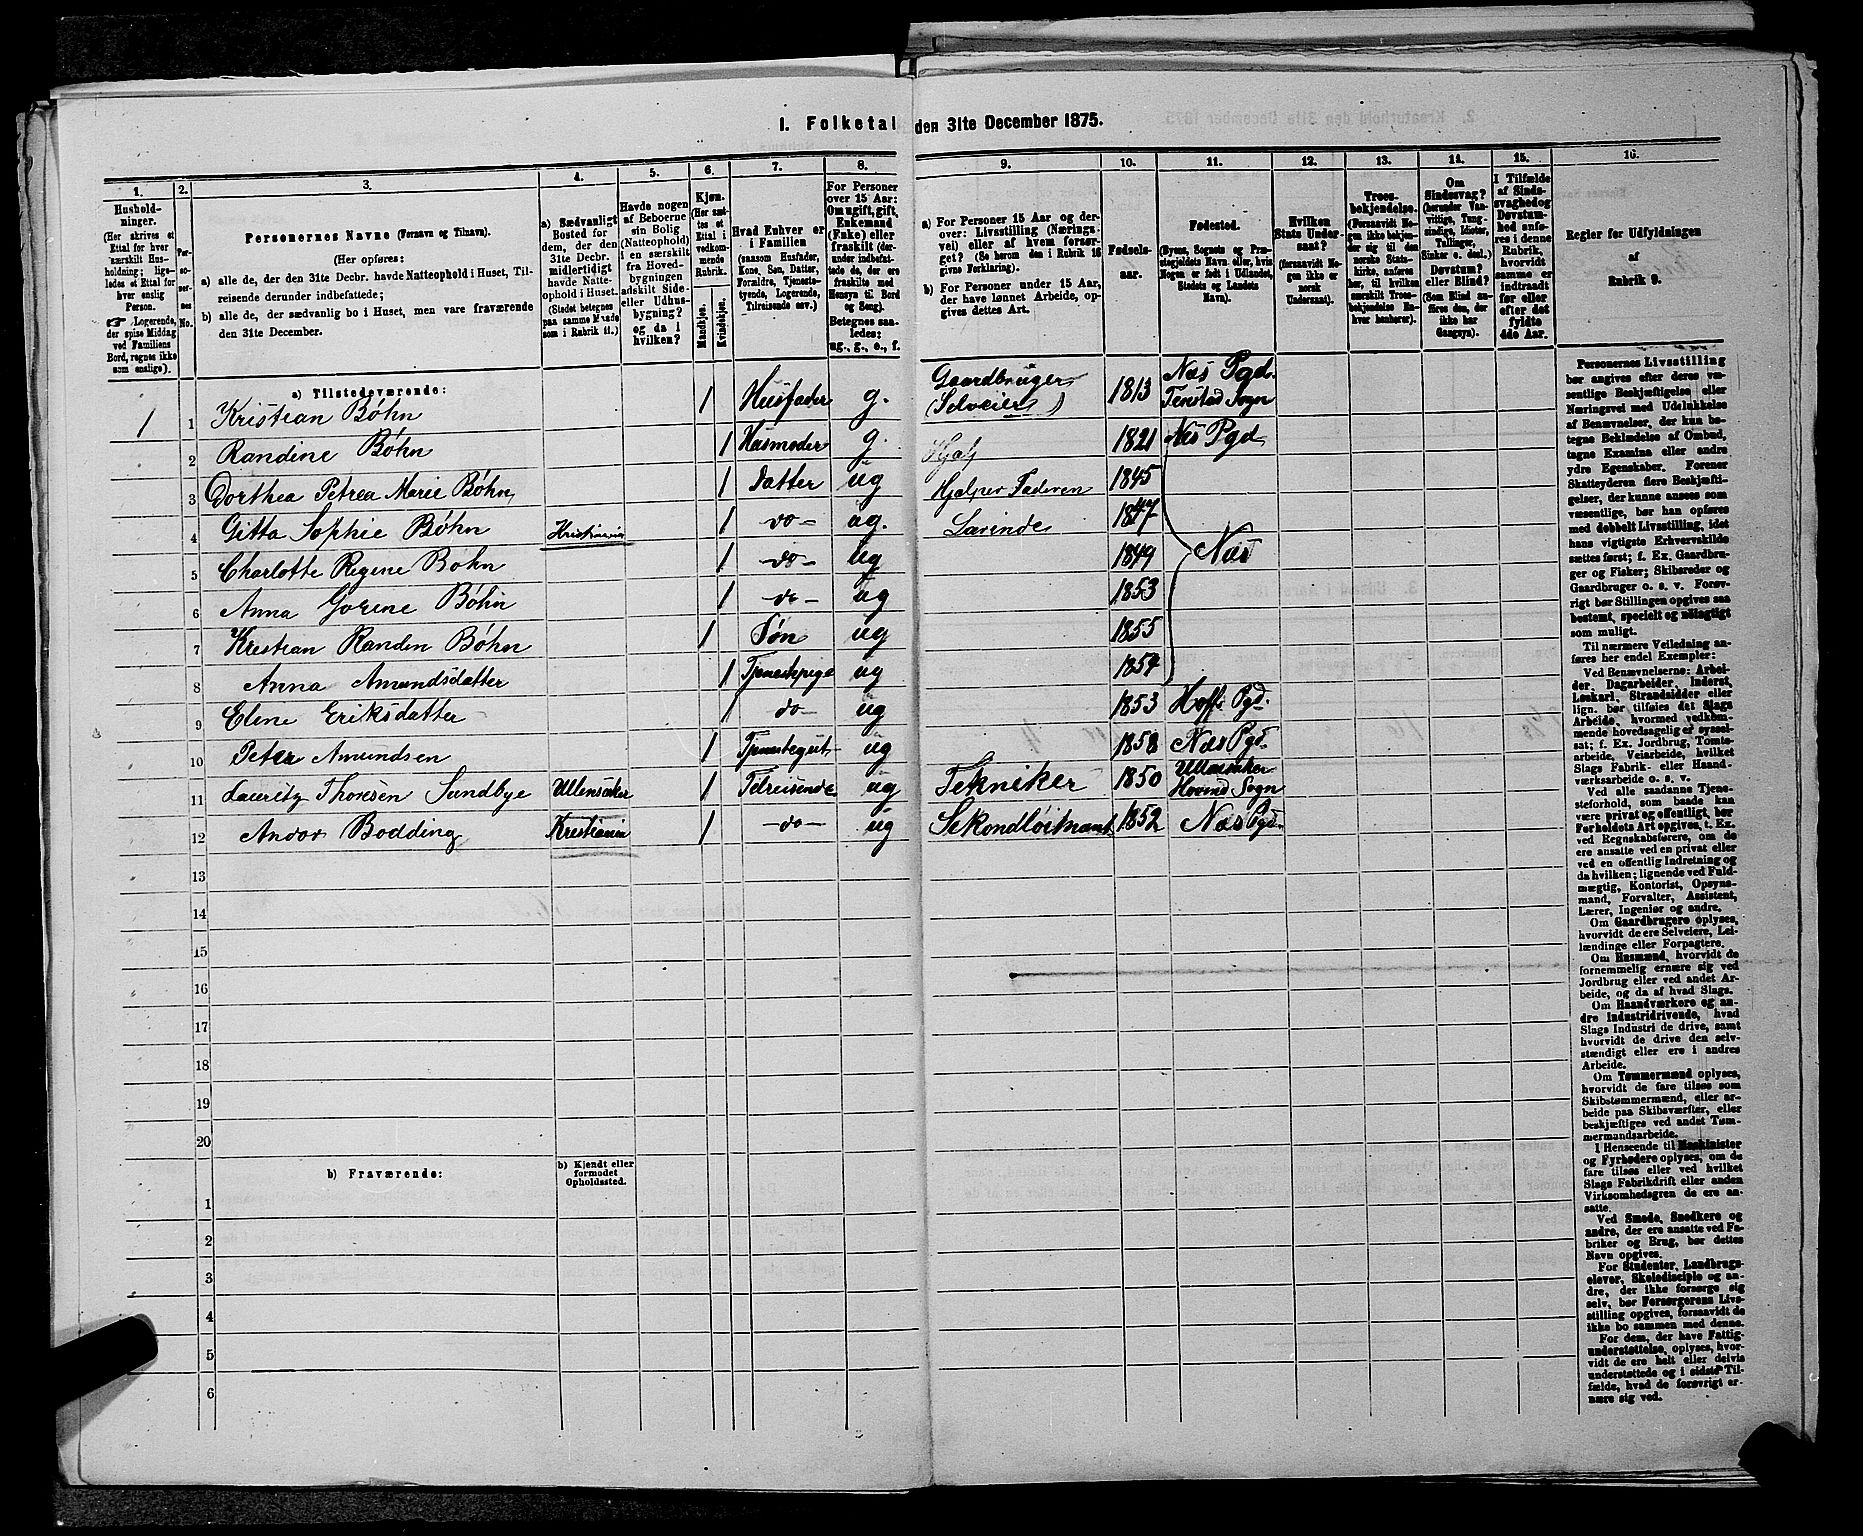 1. Folketal den 31te December 1875.
1.
Hushold-
ninger.
(Her skrives et
Ettal for hver
særskilt Hus-
holdning; lige-
ledes et Ettal
for hver
enslig
Person.
Logerende,
der spise Middag
ved Familiens
Bord, regnes ikke
som enslige).
2.
Per-
so-
ner-
nes
No.
3.
Personernes Navne (Fornavn og Tilnavn).
(Her opføres:
a) alle de, der den 31te Decbr. havde Natteophold i Huset, Til-
reisende derunder indbefattede;
b) alle de, der sædvanlig bo i Huset, men vare fraværende
den 31te December.
4.
a) Sædvanligt
Bosted for
dem, der den
31te Decbr.
midlertidigt
havde Natte-
ophold i Huset.
(Stedet betegnes
paa samme Maade
som i Rubrik 11.)
5.
Havde nogen
af Beboerne
sin Bolig
(Natteophold)
i en særskilt
fra Hoved-
bygningen
adskilt Side-
eller Udhus-
bygning?
og da i
hvilken?
6.
Kjøn.
(Her sæt-
tes et
Ettal i
vedkom-
mende
Rubrik.
Mandkjøn.
Kvindekjøn.
7.
Hvad Enhver er
i Familien
(saasom Husfader,
Kone, Søn, Datter,
Forældre, Tjeneste-
tyende, Logerende,
Tilreisende osv.)
8.
For Personer
over 15 Aar:
Om ugift, gift,
Enkemand
(Enke) eller
fraskilt (der-
under indbefat-
tede de, der ere
fraskilte med
Hensyn til Bord
og Seng).
Betegnes saa-
ledes:
ug., g., e., f.
9.
a) For Personer 15 Aar og der-
over: Livsstilling (Nærings-
vei) eller af hvem forsør-
get? (Se herom den i Rubrik 16
givne Forklaring).
b) For Personer under 15 Aar,
der have lønnet Arbeide, op-
gives dettes Art.
10.
Fødsels-
aar.
11.
Fødested.
(Byens, Sognets og Præ-
stegjeldets Navn eller, hvis
Nogen er født i Udlandet,
Stedets og Landets
Navn).
12.
Hvilken
Stats Under-
saat?
(forsaavidt No-
gen ikke er
norsk
Undersaat).
13.
Troes-
bekjendelse.
(Forsaavidt No-
gen ikke bekjen-
der sig til den
norske Stats-
kirke, anføres
her, til hvilken
særskilt Troes-
bekjendelse En-
hver henhører).
14.
Om
Sindssvag?
(herunder Van-
vittige, Tung-
sindige, Idioter,
Tullinger,
Sinker o. desl.)
Døvstum?
eller Blind?
(Som Blind an-
føres den, der
ikke har
Gangsyn).
15.
I Tilfælde
af Sinds-
svaghed og
Døvstum-
hed anfø-
res i denne
Rubrik,
hvorvidt
samme er
indtraadt
før eller
efter det
fyldte
4de Aar.
16.
Regler for Udfyldningen
af
Rubrik 9.
a) Tilstedeværende:
1 1 Kristian Bøhn 1 Husfader g. Gaardbruger (Selveier) 1813 Næs Pgd. Tenstad Sogn
2 Randine Bøhn 1 Husmoder g. 1821 Næs Pgd
3 Dorthea Petrea Marie Bøhn 1 Datter ug Hjelper Faderen 1845
4 Gitta Sophie Bøhn Kristiania 1 do- ug. 1847
5 Charlotte Regene Bøhn 1 do- ug 1849 Næs
6 Anna Gorene Bøhn 1 do- ug 1853
7 Kristian Randin Bøhn 1 Søn ug 1855
8 Anna Amundsdatter 1 Tjenestepige ug 1854
9 Elene Eriksdatter 1 do- ug 1853 Hoffs Pgd.
10 Peter Amundsen 1 Tjenestegut ug 1858 Næs Pgd
11 Lauritz Thoresen Sundbye Ullensaker 1 Tilreisende ug Tekniker 1850 Ullensaker Hovind Sogn
12 Andor Bodding Kristiania 1 do- ug Sekondløitnant 1852 Næs Pgd.
13
14
15
16
17
18
19
20
b) Fraværende:
b) Kjendt eller
formodet
Opholdssted.
1
2
3
4
5
6
Personernes Livsstilling
bør angives efter deres væ-
sentlige Beskjæftigelse eller
Næringsvei med Udelukkelse
af Benævnelser, der kun be-
tegne Beklædelse af Ombud,
tagne Examina eller andre
ydre Egenskaber. Forener
Skatteyderen flere Beskjæfti-
gelser, der kunne ansees som
væsentlige, bør han opføres
med dobbelt Livsstilling, idet
hans vigtigste Erhvervskilde
sættes først; f. Ex. Gaardbru-
ger og Fisker; Skibsreder og
Gaardbruger o. s. v. Forøv-
rigt bør Stillingen opgives saa
bestemt, specielt og nøiagtigt
som muligt.
Til nærmere Veiledning an-
føres her endel Exempler:
Ved Benævnelserne: Arbei-
der, Dagarbeider, Inderst,
Løskarl, Strandsidder eller
lign. bør tilføies det Slags
Arbeide, hvormed vedkom-
mende hovedsagelig er syssel-
sat; f. Ex. Jordbrug, Tomte-
arbeide, Veiarbeide, hvilket
Slags Fabrik- eller Haand-
værksarbeide o. s. v.
Ved alle saadanne Tjene-
steforhold, som baade kan
være privat og offentligt, bør
Forholdets Art opgives, f. Ex.
ved Regnskabsførere, om de
ere ansatte ved en privat eller
ved en offentlig Indretning og
da hvilken; lignende ved Fuld-
mægtig, Kontorist, Opsyns-
mand, Forvalter, Assistent,
Lærer, Ingeniør og andre.
Om Gaardbrugere oplyses,
hvorvidt de ere Selveiere, Lei-
lændinge eller Forpagtere.
Om Husmænd, hvorvidt de
fornemmelig ernære sig ved
Jordbrug eller ved andet Ar-
beide, og da af hvad Slags.
Om Haandværkere og an-
dre Industridrivende, hvad
Slags Industri de drive, samt
hvorvidt de drive den selv-
stændigt eller ere i andres
Arbeide.
Om Tømmermænd oplyses,
hvorvidt de fare tilsøs som
Skibstømmermænd, eller ar-
beide paa Skibsværfter, eller
beskjæftiges ved andet Tøm-
mermandsarbeide.
I Henseende til Maskinister
og Fyrbødere oplyses, om de
fare tilsøs eller ved hvilket
Slags Fabrikdrift eller anden
Virksomhedsgren de ere an-
satte.
Ved Smede, Snedkere og
andre, der ere ansatte ved Fa-
briker og Brug, bør dettes
Navn opgives.
For Studenter, Landbrugs-
elever, Skoledisciple og an-
dre, der ikke forsørge sig
selv, bør Forsørgerens Livs-
stilling opgives, forsaavidt de
ikke bo sammen med denne.
For dem, der have Fattig-
understøttelse, oplyses, hvor-
vidt de ere helt eller delvis
understøttede og i sidste Til-
fælde, hvad de forøvrigt er-
nære sig ved.